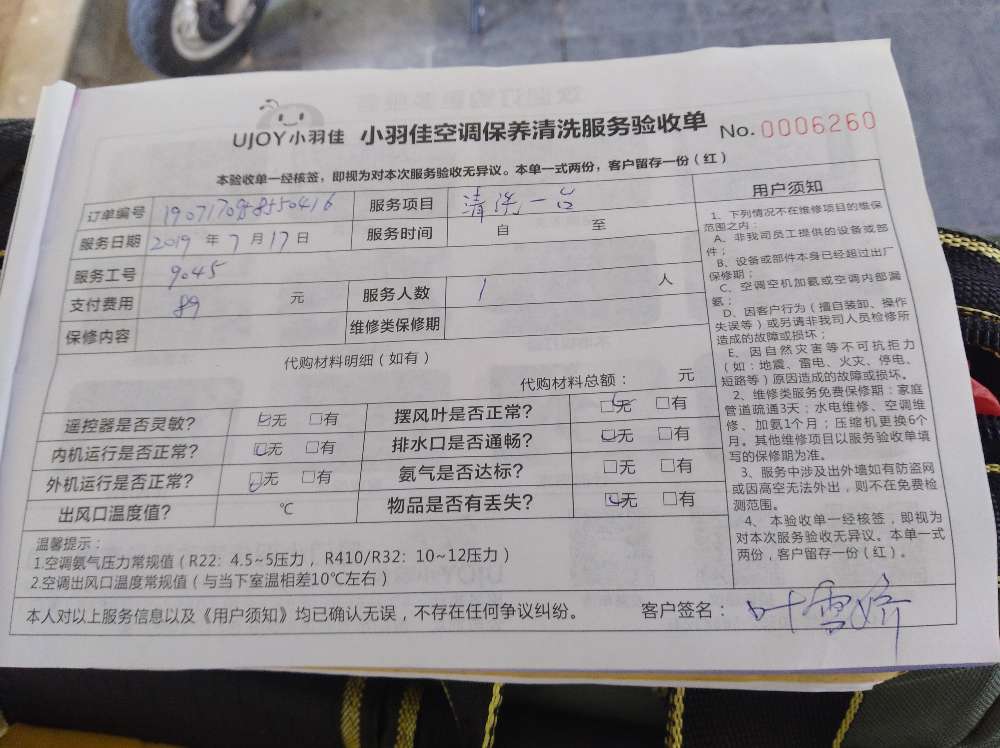 UJOY小羽佳 小羽佳空调保养清洗服务验收单 No.0006260
本验收单一经核签，即视为对本次服务验收无异议。本单一式两份，客户留存一份（红）
订单编号 服务项目 清洗一台
服务日期 2019 年 7 月 17 日 服务时间 自 至
服务工号 9045
支付费用 89 元 服务人数 1 人
保修内容 维修类保修期
代购材料明细（如有）
代购材料总额： 元
遥控器是否灵敏？ □无 □有 摆风叶是否正常？ □无 □有
内机运行是否正常？ □无 □有 排水口是否通畅？ □无 □有
外机运行是否正常？ □无 □有 氨气是否达标？ □无 □有
出风口温度值？ ℃ 物品是否有丢失？ □无 □有
温馨提示：
1.空调氨气压力常规值（R22：4.5~5压力，R410/R32：10~12压力）
2.空调出风口温度常规值（与当下室温相差10℃左右）
本人对以上服务信息以及《用户须知》均已确认无误，不存在任何争议纠纷。 客户签名：叶雪娇
用户须知
1、下列情况不在维修项目的维保
范围之内：
A、非我司员工提供的设备或部
件；
B、设备或部件本身已经超过出厂
保修期；
C、空调空机加氨或空调内部漏
氨；
D、因客户行为（擅自装卸、操作
失误等）或另请非我司人员检修所
造成的故障或损坏；
E、因自然灾害等不可抗拒力
（如：地震、雷电、火灾、停电、
短路等）原因造成的故障或损坏。
2、维修类服务免费保修期：家庭
管道疏通3天；水电维修、空调维
修、加氨1个月；压缩机更换6个
月。其他维修项目以服务验收单填
写的保修期为准。
3、服务中涉及出外墙如有防盗网
或因高空无法外出，则不在免费检
测范围。
4、本验收单一经核签，即视为
对本次服务验收无异议。本单一式
两份，客户留存一份（红）。